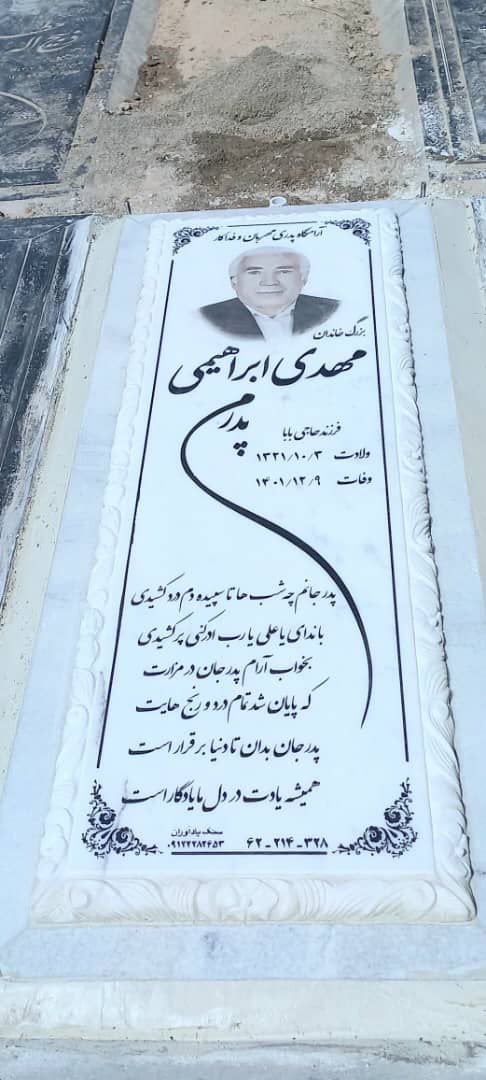 آرامگاه پدری مهربان و فداکار
بزرگ خاندان
مهدی ابراهیمی
پدرم
فرزند حاجی بابا
ولادت ۱۳۲۱/۱۰/۳
وفات ۱۴۰۱/۱۲/۹
پدر جانم چه شب ها تا سپیده دم درد کشیدی
با ندای یا علی یا رب ادرکنی پر کشیدی
بخواب آرام پدر جان در مزارت
که پایان شد تمام درد و رنج هایت
پدر جان بدان تا دنیا برقرار است
همیشه یادت در دل ما یادگار است
سنگ یادآوران
۰۹۱۲۲۲۸۲۶۵۳
۶۲-۲۱۴-۳۲۸